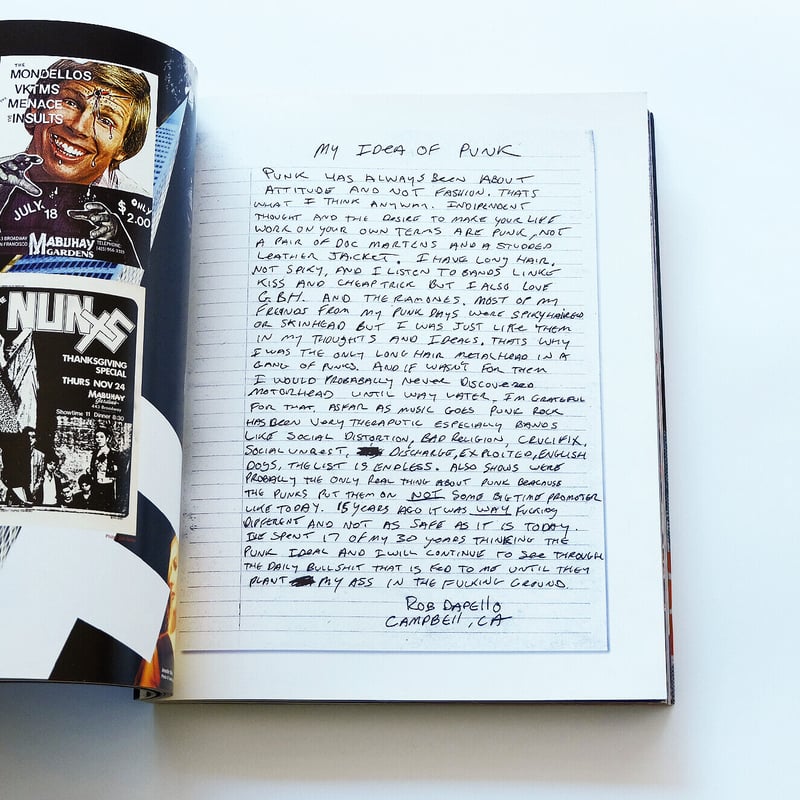 THE
MONDELLOS
VKTMS
MENACE
INSULTS
JULY 18
ONLY
$2.00
BROADWAY
FRANCISCO
MABUHAY
GARDENS
TELEPHONE
NUNXS
THANKSGIVING
SPECIAL
THURS NOV 24
MABUHAY
Gardens
443 Broadway
Showtime 11 Dinner 8:30
MY IDEA OF PUNK
PUNK HAS ALWAYS BEEN ABOUT
ATTITUDE AND NOT FASHION. THATS
WHAT I THINK ANYWAY. INDIPENDENT
THOUGHT AND THE DESIRE TO MAKE YOUR LIFE
WORK ON YOUR OWN TERMS ARE PUNK, NOT
A PAIR OF DOC MARTENS AND A STUDDED
LEATHER JACKET. I HAVE LONG HAIR,
NOT SPIKY, AND I LISTEN TO BANDS LINKE
KISS AND CHEAP TRICK BUT I ALSO LOVE
G.B.H. AND THE RAMONES. MOST OF MY
FREINDS FROM MY PUNK DAYS WERE SPIKYHAIRED
OR SKINHEAD BUT I WAS JUST LIKE THEM
IN MY THOUGHTS AND IDEALS. THATS WHY
I WAS THE ONLY LONG HAIR METALHEAD IN A
GANG OF PUNKS. AND IF WASN'T FOR THEM
I WOULD PROBABALLY NEVER DISCOVERED
MOTORHEAD UNTIL WAY LATER. I'M GRATEFUL
FOR THAT. ASFAR AS MUSIC GOES PUNK ROCK
HAS BEEN VERY THERAPUTIC ESPECIALLY BANDS
LIKE SOCIAL DISTORTION, BAD RELIGION, CRUCIFIX,
SOCIAL UNREST, DISCHARGE, EXPLOITED, ENGLISH
DOGS, THE LIST IS ENDLESS. ALSO SHOWS WERE
PROBALLY THE ONLY REAL THING ABOUT PUNK BEACAUSE
THE PUNKS PUT THEM ON NOT SOME BIGTIME PROMOTER
LIKE TODAY. 15 YEARS AGO IT WAS WAY FUCKING
DIFFERENT AND NOT AS SAFE AS IT IS TODAY.
I'VE SPENT 17 OF MY 30 YEARS THINKING THE
PUNK IDEAL AND I WILL CONTINUE TO SEE THROUGH
THE DAILY BULLSHIT THAT IS FED TO ME UNTIL THEY
PLANT MY ASS IN THE FUCKING GROUND.
ROB DAPELLO
CAMPBELL, CA